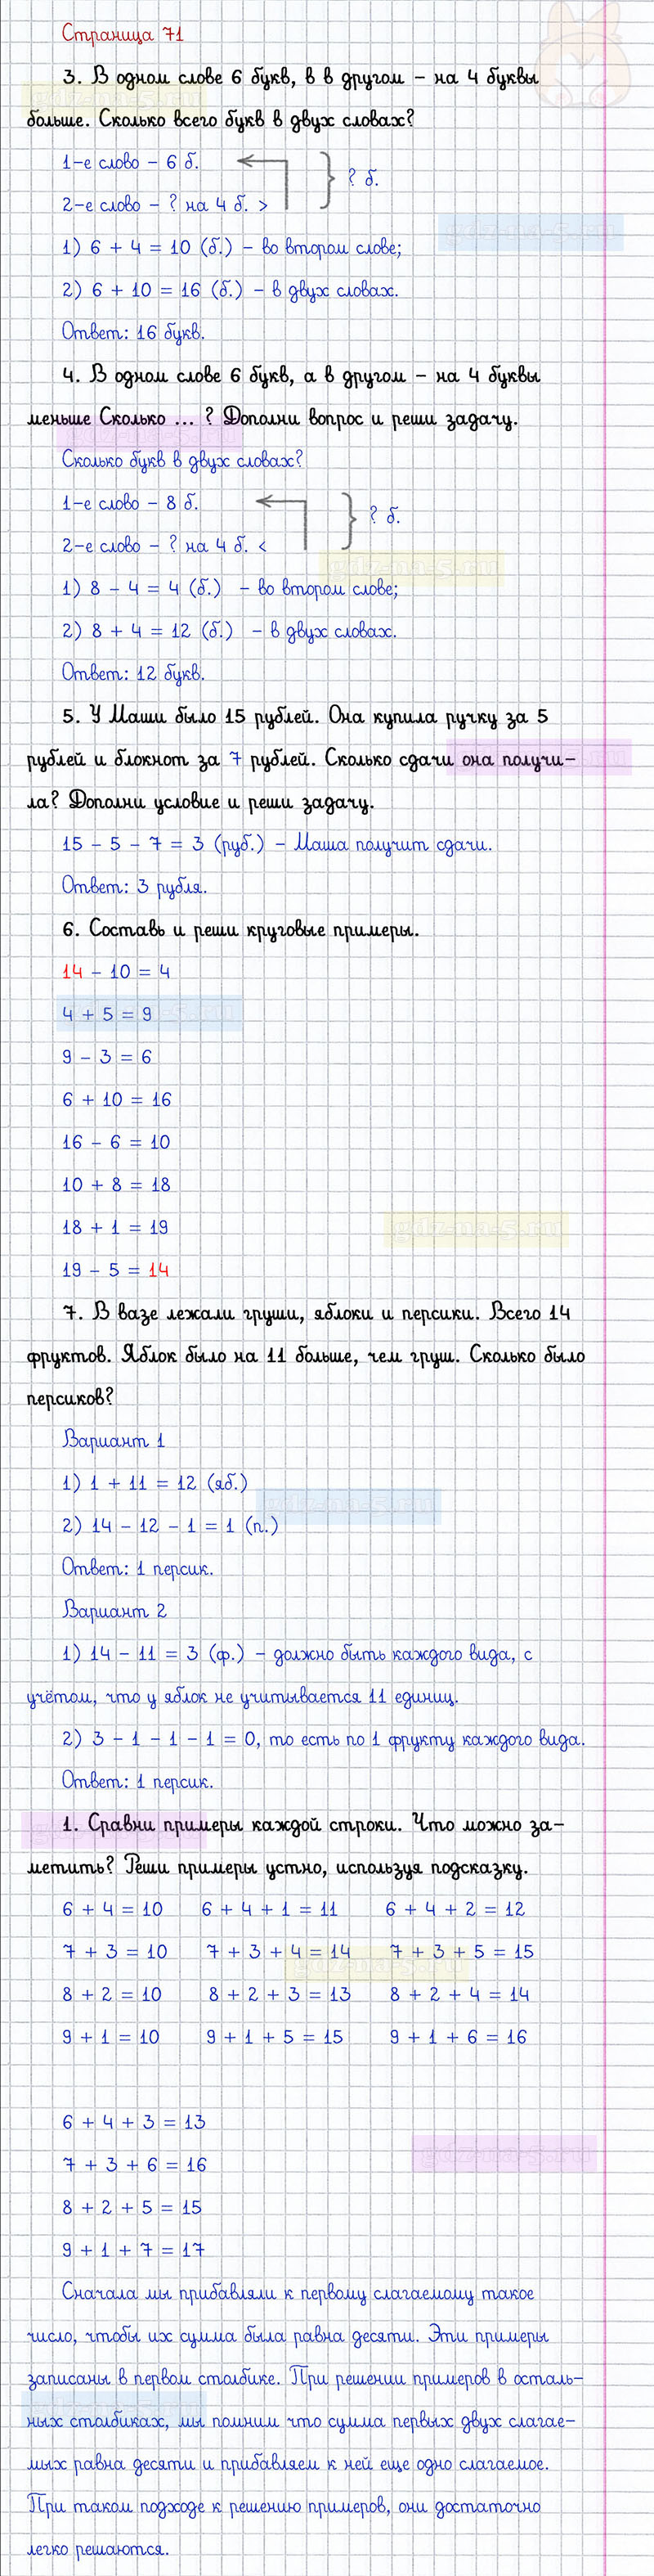 Страница 71
3. В одном слове 6 букв, в в другом – на 4 буквы
больше. Сколько всего букв в двух словах?
1-е слово – 6 б.
? б.
2-е слово – ? на 4 б. >
1) 6 + 4 = 10 (б.) – во втором слове;
2) 6 + 10 = 16 (б.) – в двух словах.
Ответ: 16 букв.
4. В одном слове 6 букв, а в другом – на 4 буквы
меньше Сколько ... ? Дополни вопрос и реши задачу.
Сколько букв в двух словах?
1-е слово – 8 б.
? б.
2-е слово – ? на 4 б. <
1) 8 – 4 = 4 (б.) – во втором слове;
2) 8 + 4 = 12 (б.) – в двух словах.
Ответ: 12 букв.
5. У Маши было 15 рублей. Она купила ручку за 5
рублей и блокнот за 7 рублей. Сколько сдачи она получи-
ла? Дополни условие и реши задачу.
15 – 5 – 7 = 3 (руб.) – Маша получит сдачи.
Ответ: 3 рубля.
6. Составь и реши круговые примеры.
14 – 10 = 4
4 + 5 = 9
9 – 3 = 6
6 + 10 = 16
16 – 6 = 10
10 + 8 = 18
18 + 1 = 19
19 – 5 = 14
7. В вазе лежали груши, яблоки и персики. Всего 14
фруктов. Яблок было на 11 больше, чем груш. Сколько было
персиков?
Вариант 1
1) 1 + 11 = 12 (яб.)
2) 14 – 12 – 1 = 1 (п.)
Ответ: 1 персик.
Вариант 2
1) 14 – 11 = 3 (ф.) – должно быть каждого вида, с
учётом, что у яблок не учитывается 11 единиц.
2) 3 – 1 – 1 – 1 = 0, то есть по 1 фрукту каждого вида.
Ответ: 1 персик.
1. Сравни примеры каждой строки. Что можно за-
метить? Реши примеры устно, используя подсказку.
6 + 4 = 10 6 + 4 + 1 = 11 6 + 4 + 2 = 12
7 + 3 = 10 7 + 3 + 4 = 14 7 + 3 + 5 = 15
8 + 2 = 10 8 + 2 + 3 = 13 8 + 2 + 4 = 14
9 + 1 = 10 9 + 1 + 5 = 15 9 + 1 + 6 = 16
6 + 4 + 3 = 13
7 + 3 + 6 = 16
8 + 2 + 5 = 15
9 + 1 + 7 = 17
Сначала мы прибавляли к первому слагаемому такое
число, чтобы их сумма была равна десяти. Эти примеры
записаны в первом столбике. При решении примеров в осталь-
ных столбиках, мы помним что сумма первых двух слагае-
мых равна десяти и прибавляем к ней еще одно слагаемое.
При таком подходе к решению примеров, они достаточно
легко решаются.